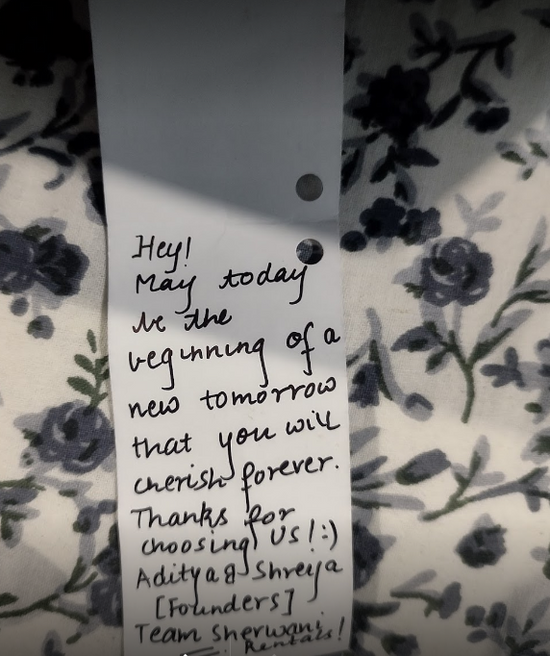 Hey!
May today
be the
beginning of a
new tomorrow
that you will
cherish forever.
Thanks for
choosing Us!:)
Aditya & Shreya
[Founders]
Team Sherwani
Rentals!